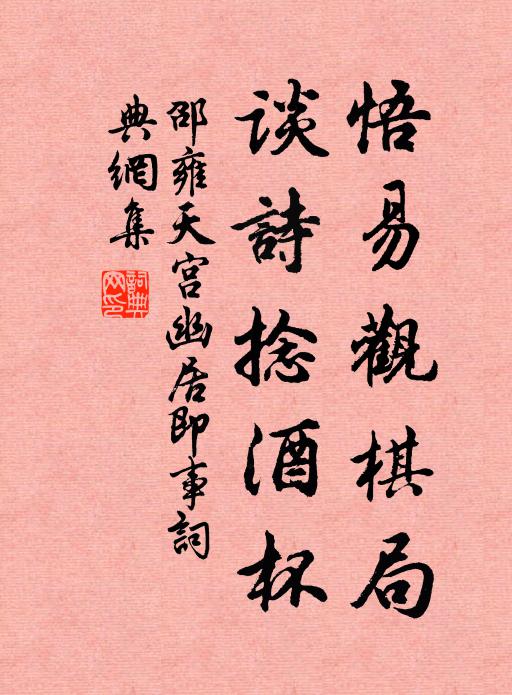 悟易觀棋局
談詩捻酒杯
邵雍天宮幽居即事詞
典網集
詞典網印